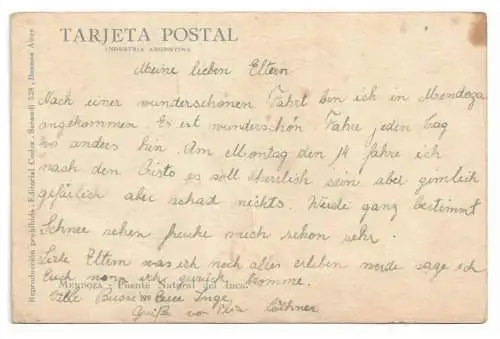 TARJETA POSTAL
INDUSTRIA ARGENTINA
Meine lieben Eltern
Nach einer wunderschönen Fahrt bin ich in Mendoza
angekommen. Es ist wunderschön. Fahre jeden Tag
wo anders hin. Am Montag den 14 fahre ich
nach den Cristo es soll Herrlich sein aber zimlich
gefärlich aber schad nichts. Werde ganz bestimmt
Schnee sehen freuhe mich schon sehr.
Liebe Eltern was ich noch alles erleben werde sage ich
Euch wann ich zurück komme.
MENDOZA - Puente Natural del Inca.
Eure Inge,
Grüße von
Reproducción prohibida - Editorial Codex - Buenos Aires